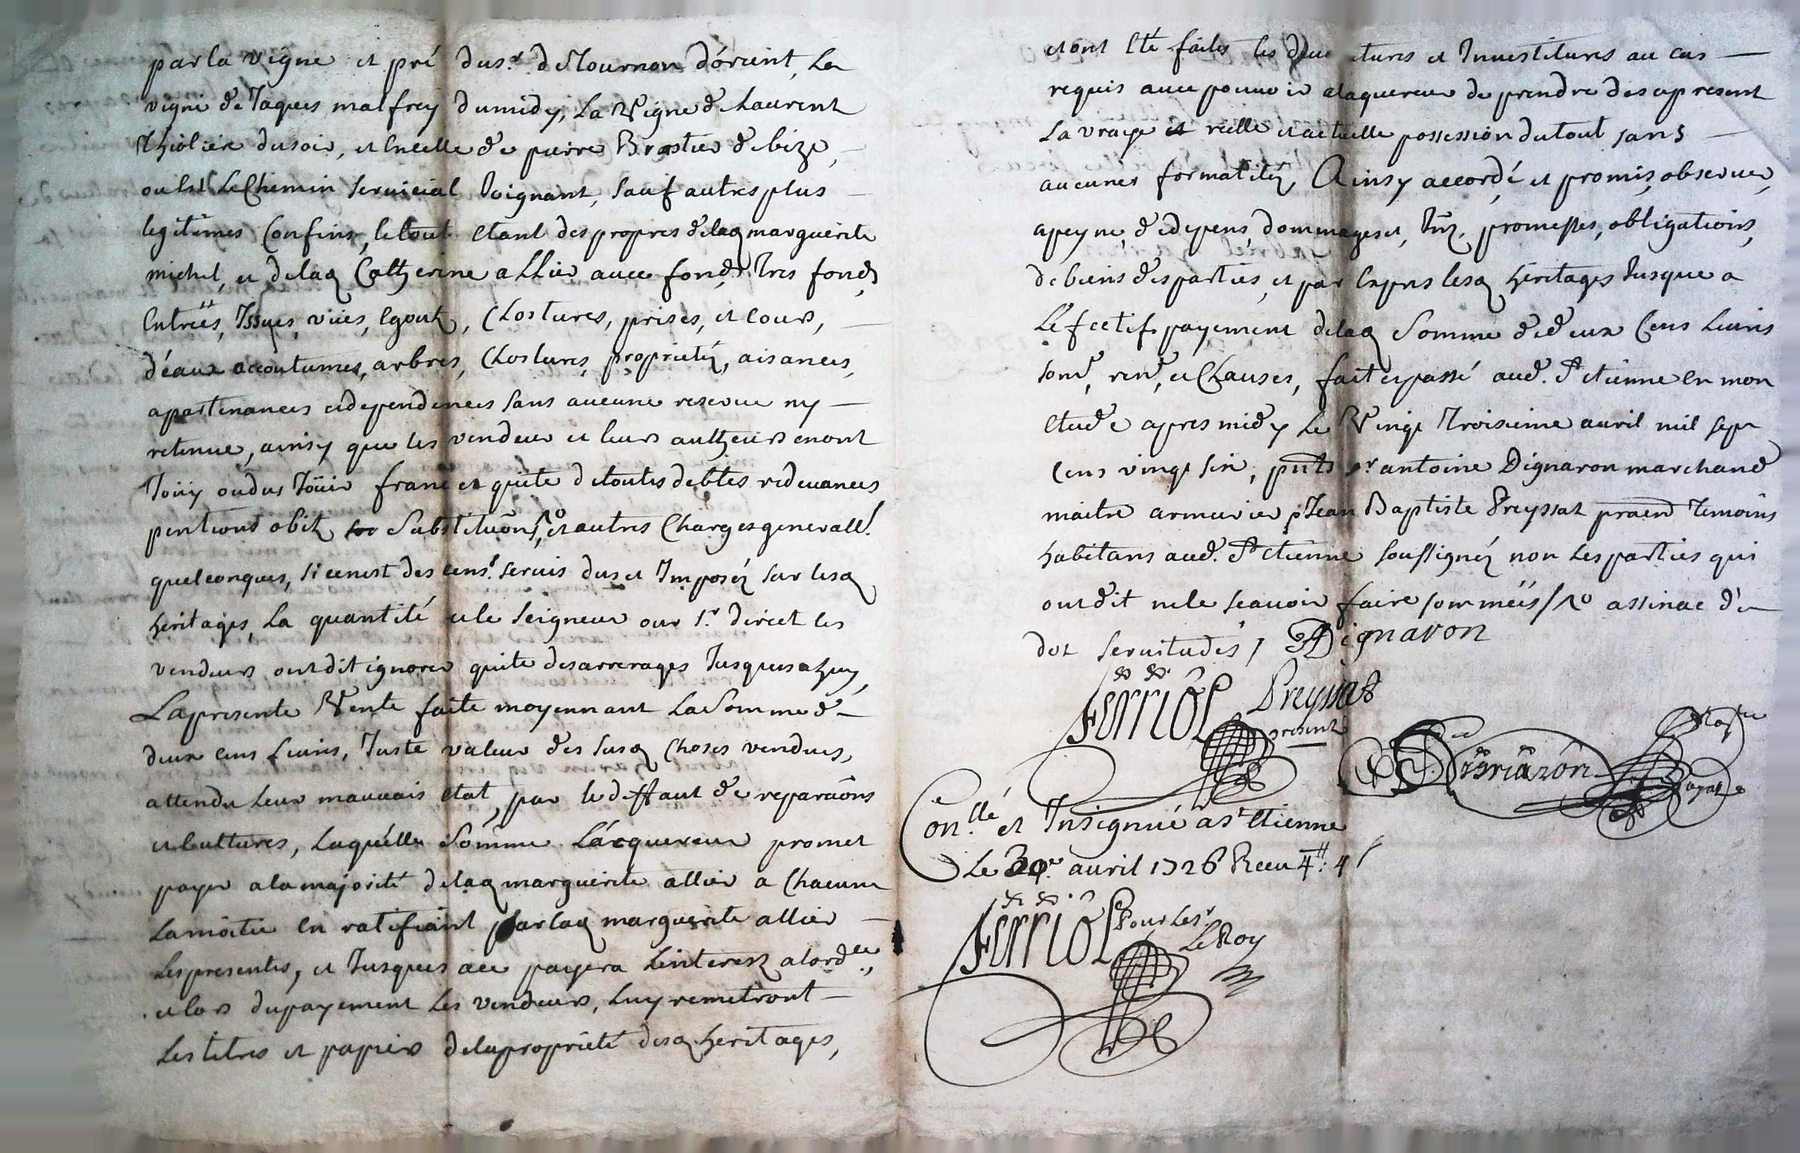 par la vigne et pré du sr. de Tournon d'orient, la
vigne de Jaques malfrey du midy, la Vigne de Laurent
Thiolier du soir, et celle de pierre Brostier de bize,
le Chemin servicial Joignant, sauf autres plus
legitimes Confins, le tout etant des propres de lad marguerite
michel, et de lad Catherine allier avec fond, tres fond,
Entreés, Issues, vuës, Egouts, Clostures, prises, et cours,
d'éaux accoutumes, arbres, Clostures, proprietéz, aisances,
apartenances et dependences sans aucune reserve ny
retenue, ainsy que les vendeurs et leurs autheurs en ont
Joüy ou dus Joüir franc et quite de toutes debtes redevances
pentions obits Substituons, et autres Charges generalles
quelconques, si ce nest des cens. servis dus et Imposéz sur lesd
héritages, La quantité et le seigneur ou sr. direct les
vendeurs ont dit ignorer quite des arrerages Jusques a huy,
La presente Vente faite moyennant La Somme de
deux cens Livres, Juste valeur des susd Choses vendues,
attendu leur mauvais etat, par le deffaut de reparaôns
et Cultures, Laquélle Sômme L'acquereur promet
payer a la majorité de lad marguerite allier a Chacune
La moitié en ratifiant par lad marguerite allier
Les presentes, et Jusques a ce payera L'interest a l'ordce.,
et lors du payement Les vendeurs, Luy remetront
Les titres et papiers de la proprieté desd heritages,
et ont Eté faites les Investitures au cas
requis avec pouvoir a laquereur de prendre des a present
La vraye et réelle et actuelle possession du tout sans
aucunes formalitéz, Ainsy accordé et promis, observer,
a peyne, de depens, dommages et, promesses, obligations,
de biens des parties, et par Exprès lesd héritages Jusque a
L'effectif payement de lad Somme de deux Cens Livres
soum., ren., et Clauses, fait et passé aud. St etienne En mon
etude apres midy Le Vingt Troisieme avril mil sept
Cens vingt six, pnts sr antoine Dignaron marchand
maitre armurier Jean Baptiste Preyssat Temoins
habitans aud. St etienne soussignéz non Les parties qui
ont dit ne le scavoir faire sommeés
servitudes, Dignaron
Ferriôl Preyssat
present
Con.llé et Insignué a st Etienne
Le avril 1726 Receu 4tt: 4s
Ferriôl Pour Le sr
Le Roy